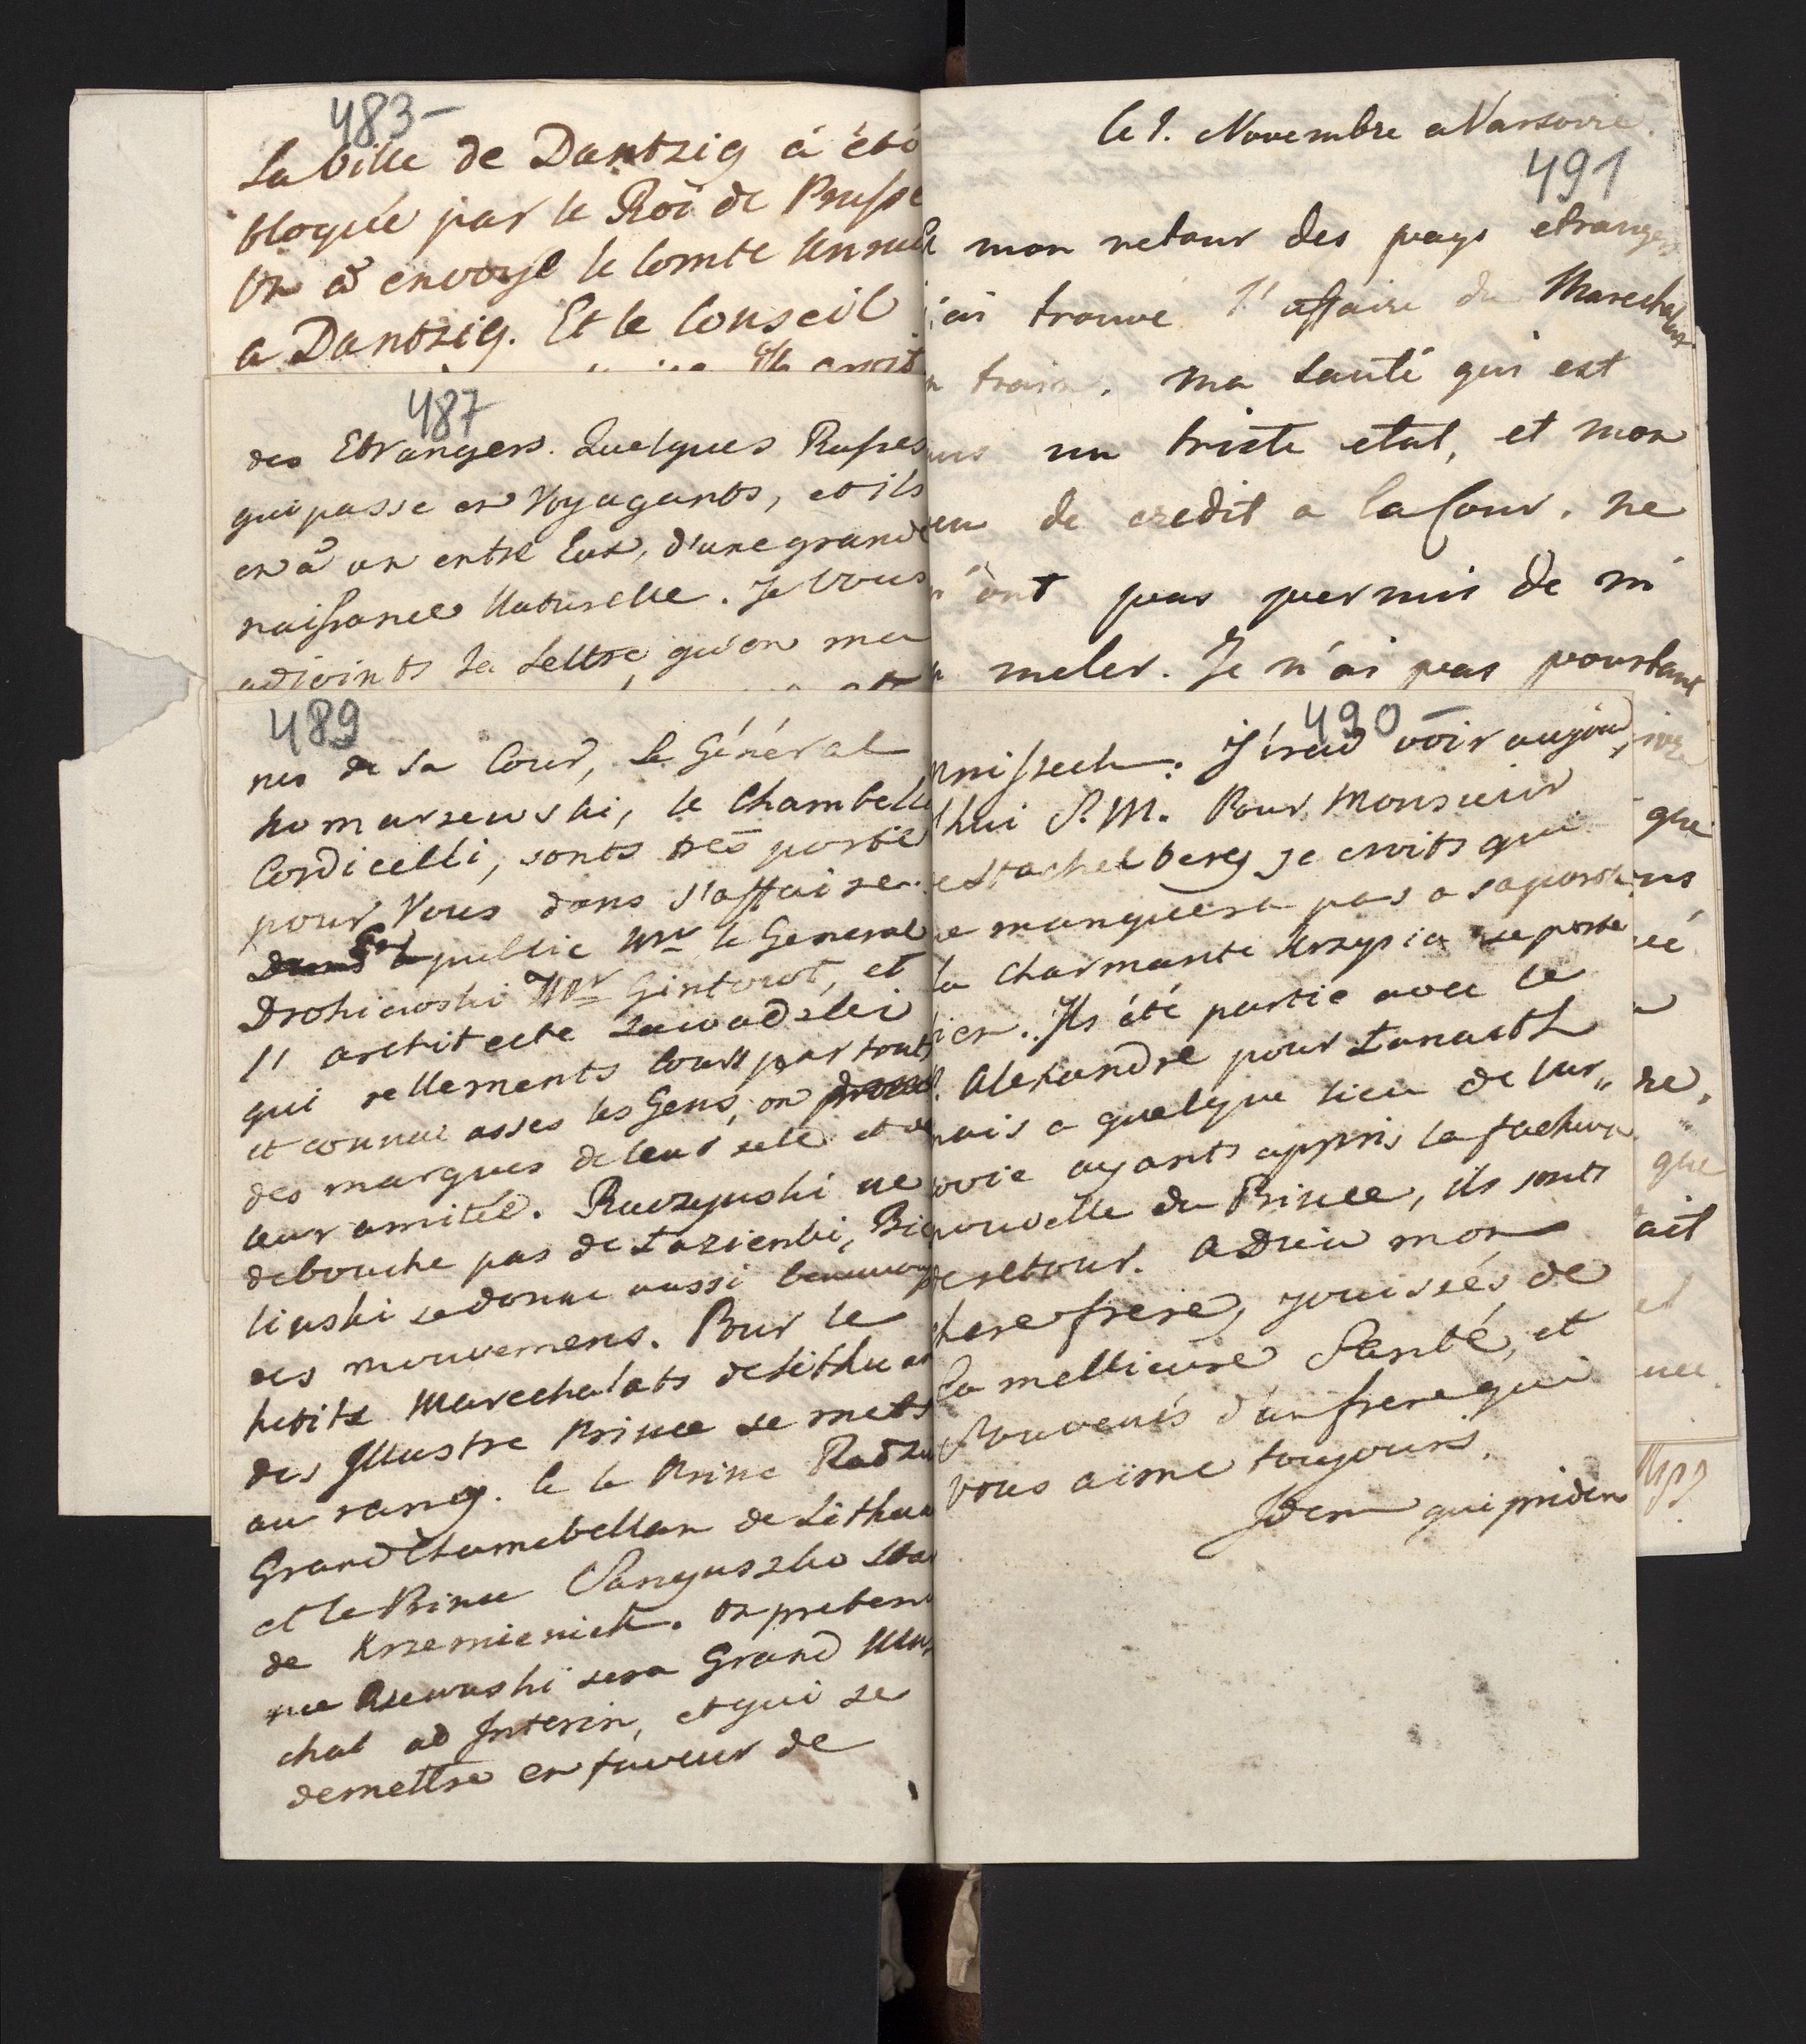 483-
La Ville de Dantzig á été
bloquée par le Roi de Prusse
On á envoyé le Comte
a Dantzig. Et le Conseil
487
des Etrangers. Quelques Russes
qui passe en Voyagants, et ils
en á un entre Eux, d'une grande
naissance Naturelle. Je Vous
adjoints la Lettre qu'on ma
489
nes de Sa Cour, Le Général
Komarzewski, le Chambell
Cordicelli, sonts tres portié
pour Vous dans l'affaire.
public Mr le General
Drohiewski Mr Gintowt, et
l'architecte Zawadzki
qui rellements court par touts
et connue asses les Gens, on
des marques de leur zele et de
leur amitié. Raczynski ne
debouche pas de Lazienki, Bie
linski se donne aussi beaucoup
des mouvemens. Pour le
petits Marechalats de Lithua
des Illustre Prince se mets
au rang. C le Prince Radzi
Grand Chambellan de Lithua
et le Prince Sanguszko Sta
de Krzemienieck. On preten
que Rzewuski sera Grand Mar
chal ad Interim, et qui se
demettre en faveur de
le 1. Novembre a Varsovie.
491
A mon retour des pays etranger
j'ai trouvé l'affaire du Marechalat
n train. Ma santé qui est
ans un triste etat, et mon
eu de credit a la Cour, ne
m'ont pas permis de m'
meler. Je n'ai pas pourtant
490-
J'irai voir aujour
d'hui S. M. Pour Monsieur
de Stachelberg je croits qui
ne manquera pas a
la charmante Krzysia se porte
bien. Ils été partie avec le
P. Alexandre pour Lanauth
mais a quelque lieu de Var„
sovie ayants appris la facheuse
nouvelle du Prince, ils sonts
de retour. Adieu mon
chere frere, jouissés de
la mellieure Santé, et
Souvenés d'un frere qui
vous aime toujours.
Idem qui pridem
que
ns
né
ne,
que
ait
et